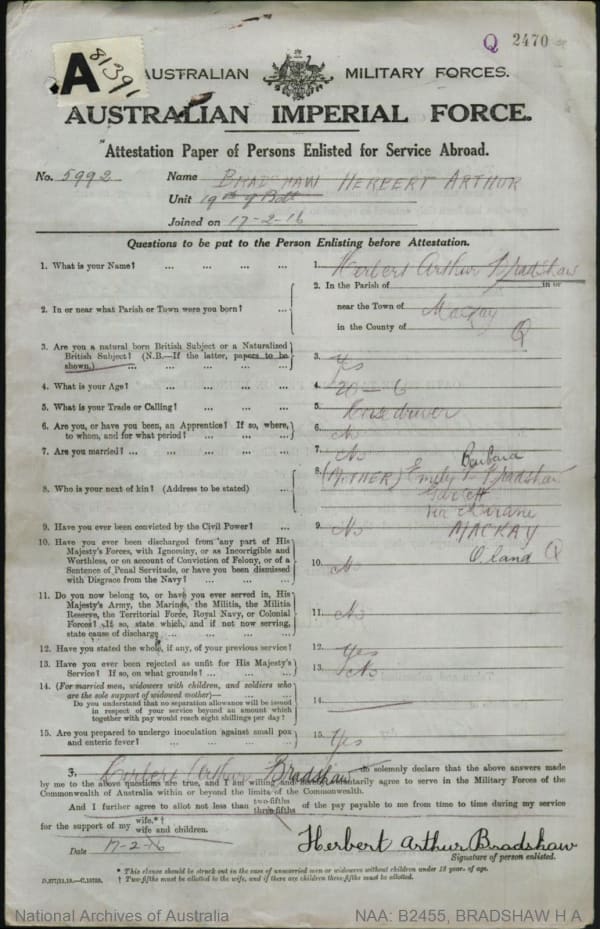 Q 2470
A 81391
AUSTRALIAN MILITARY FORCES.
AUSTRALIAN IMPERIAL FORCE.
Attestation Paper of Persons Enlisted for Service Abroad.
No. 5992 Name BRADSHAW HERBERT ARTHUR
Unit 19th
Joined on 17-2-16
Questions to be put to the Person Enlisting before Attestation.
1. What is your Name? ... ... ... ... 1. Herbert Arthur Bradshaw
2. In or near what Parish or Town were you born? ... 2. In the Parish of in or
near the Town of Mackay
in the County of Q
3. Are you a natural born British Subject or a Naturalized
British Subject? (N.B.—If the latter, papers to be
shown.) 3. Yes
4. What is your Age? ... ... ... ... 4. 20-6
5. What is your Trade or Calling? ... ... ... 5. driver
6. Are you, or have you been, an Apprentice? If so, where,
to whom, and for what period? ... ... ... 6. No
7. Are you married? ... ... ... ... 7. No
8. Who is your next of kin? (Address to be stated) ... 8. (MOTHER) Emily Barbara Bradshaw
via Mirani
MACKAY
Q.land Q
9. Have you ever been convicted by the Civil Power? ... 9. No
10. Have you ever been discharged from any part of His
Majesty's Forces, with Ignominy, or as Incorrigible and
Worthless, or on account of Conviction of Felony, or of a
Sentence of Penal Servitude, or have you been dismissed
with Disgrace from the Navy? ... ... ... 10. No
11. Do you now belong to, or have you ever served in, His
Majesty's Army, the Marines, the Militia, the Militia
Reserve, the Territorial Force, Royal Navy, or Colonial
Forces? If so, state which, and if not now serving,
state cause of discharge ... ... ... 11. No
12. Have you stated the whole, if any, of your previous service? 12. Yes
13. Have you ever been rejected as unfit for His Majesty's
Service? If so, on what grounds? ... ... ... 13. No
14. (For married men, widowers with children, and soldiers who
are the sole support of widowed mother)—
Do you understand that no separation allowance will be issued
in respect of your service beyond an amount which
together with pay would reach eight shillings per day? 14.
15. Are you prepared to undergo inoculation against small pox
and enteric fever? ... ... ... ... 15. Yes
I, Herbert Arthur Bradshaw do solemnly declare that the above answers made
by me to the above questions are true, and I am willing and hereby voluntarily agree to serve in the Military Forces of the
Commonwealth of Australia within or beyond the limits of the Commonwealth.
And I further agree to allot not less than two-fifths three-fifths of the pay payable to me from time to time during my service
for the support of my wife.*† wife and children.
Date 17-2-16 Herbert Arthur Bradshaw
Signature of person enlisted.
* This clause should be struck out in the case of unmarried men or widowers without children under 18 years of age.
† Two-fifths must be allotted to the wife, and if there are children three-fifths must be allotted.
National Archives of Australia NAA: B2455, BRADSHAW H A